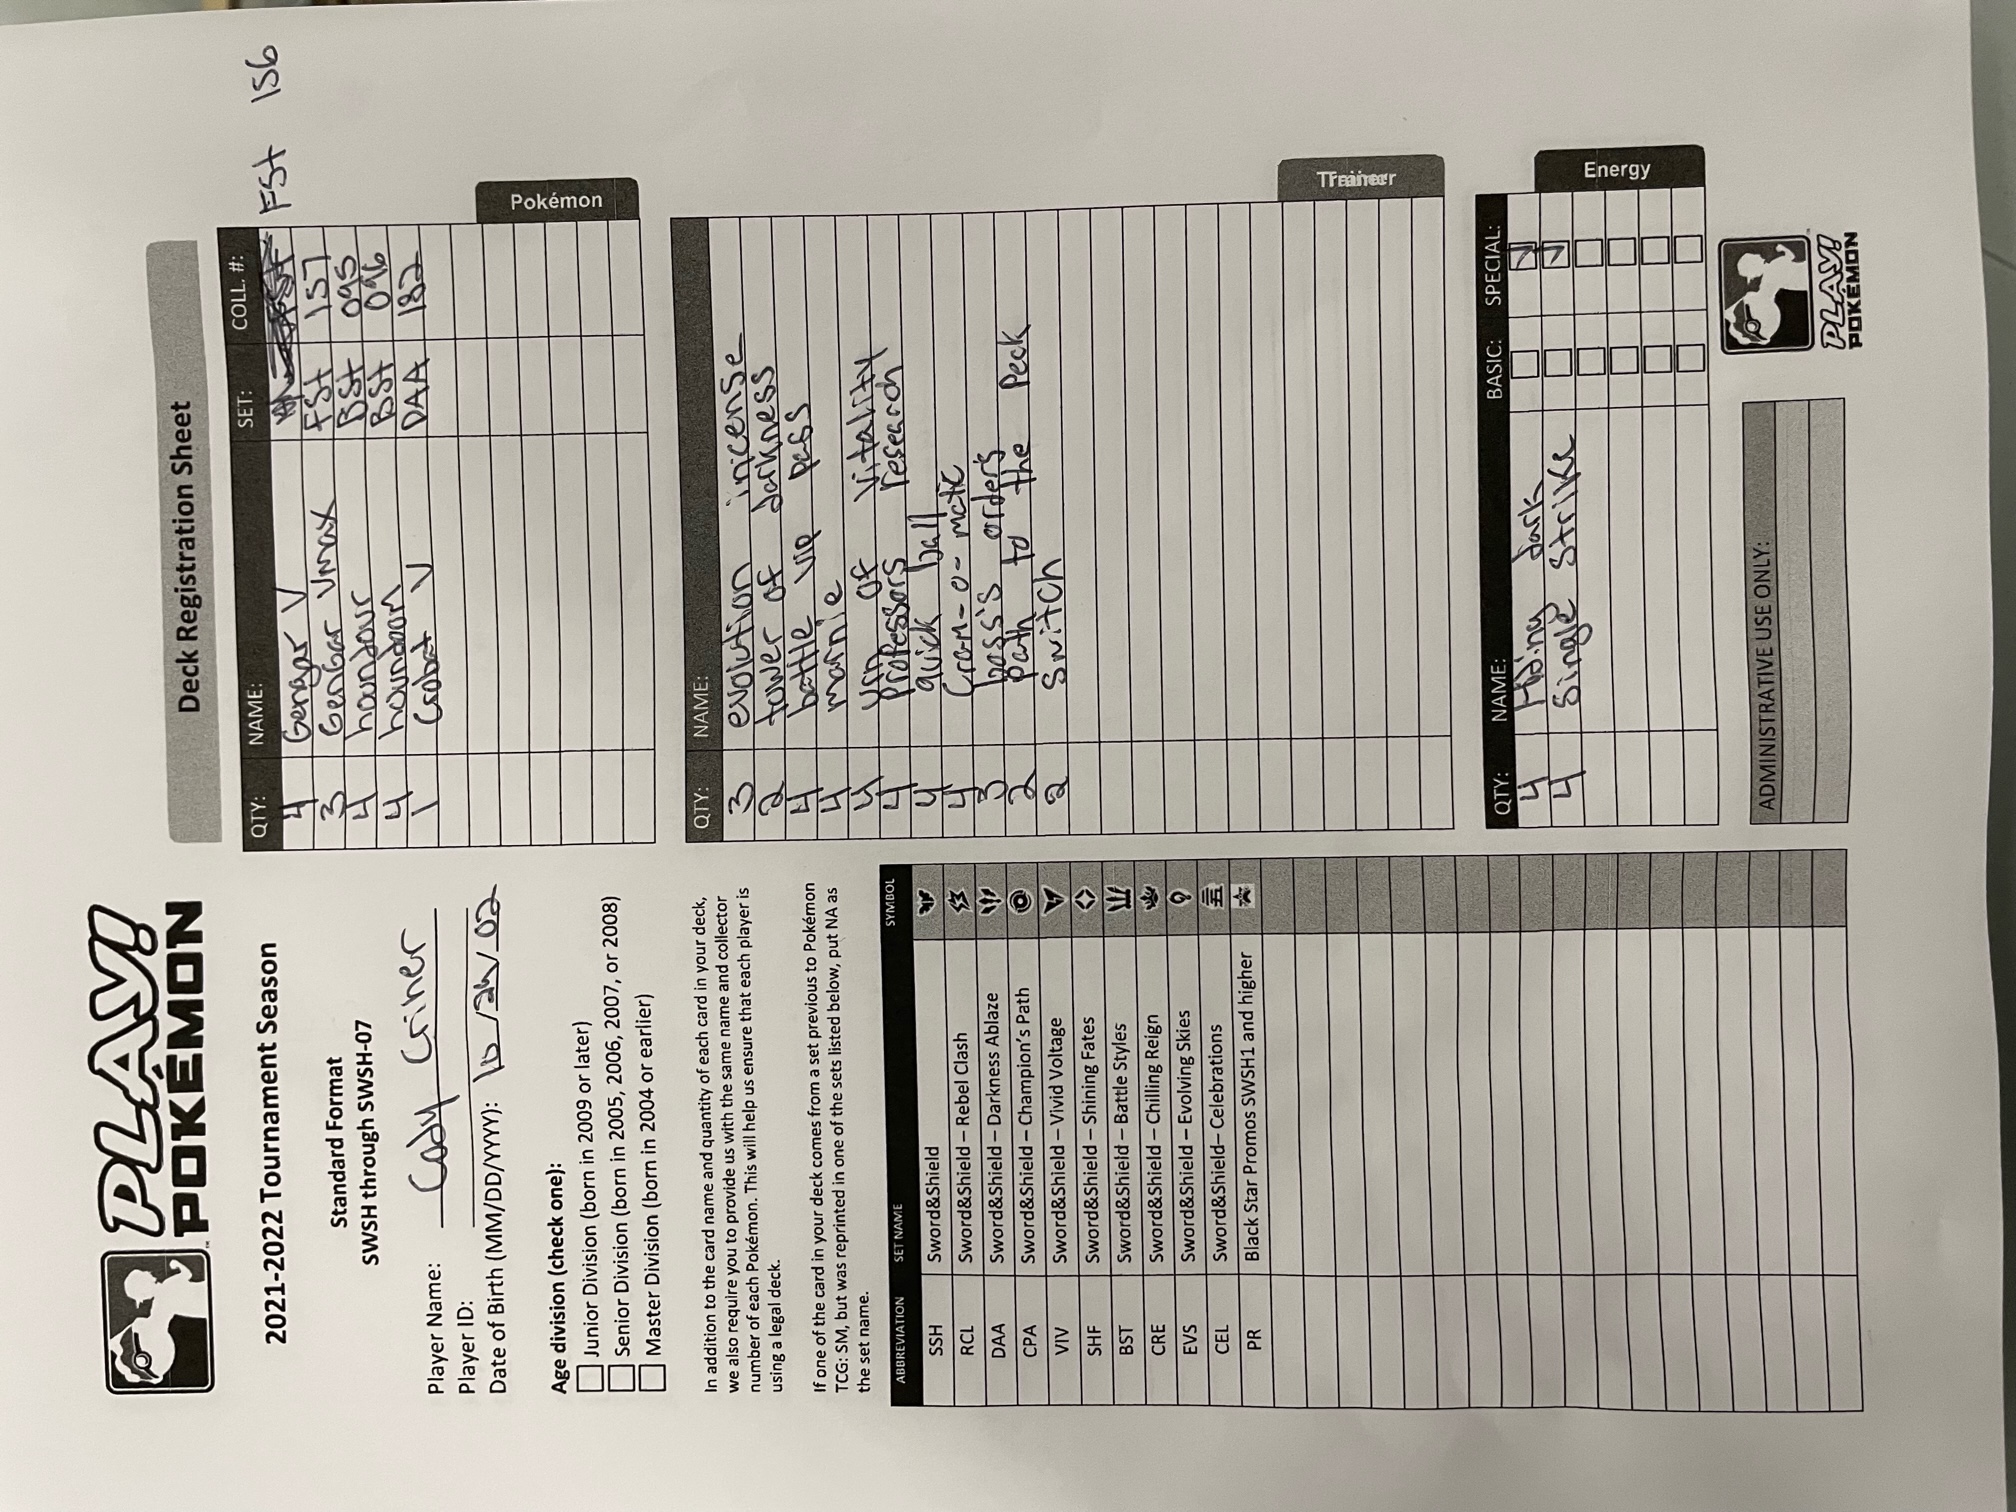 PLAY!
POKÉMON
2021-2022 Tournament Season
Standard Format
SWSH through SWSH-07
Player Name: Cody Criner
Player ID:
Date of Birth (MM/DD/YYYY): 10/24/02
Age division (check one):
Junior Division (born in 2009 or later)
Senior Division (born in 2005, 2006, 2007, or 2008)
Master Division (born in 2004 or earlier)
In addition to the card name and quantity of each card in your deck,
we also require you to provide us with the same name and collector
number of each Pokémon. This will help us ensure that each player is
using a legal deck.
If one of the card in your deck comes from a set previous to Pokémon
TCG: SM, but was reprinted in one of the sets listed below, put NA as
the set name.
ABBREVIATION SET NAME SYMBOL
SSH Sword&Shield
RCL Sword&Shield – Rebel Clash
DAA Sword&Shield – Darkness Ablaze
CPA Sword&Shield – Champion's Path
VIV Sword&Shield – Vivid Voltage
SHF Sword&Shield – Shining Fates
BST Sword&Shield – Battle Styles
CRE Sword&Shield – Chilling Reign
EVS Sword&Shield – Evolving Skies
CEL Sword&Shield– Celebrations
PR Black Star Promos SWSH1 and higher
Deck Registration Sheet
QTY: NAME: SET: COLL. #:
4 Gengar V FSt 156
3 GenGar Vmax FSt 157
4 houndour BSt 095
4 houndoom BSt 096
1 Crobat V DAA 182
Pokémon
QTY: NAME:
3 evolution incense
2 tower of darkness
4 battle vip pass
4 marnie
4 urn of vitality
4 Professors research
4 quick ball
4 Cram-o-matic
3 boss's orders
2 Path to the Peck
2 Switch
Trainer
QTY: NAME: BASIC: SPECIAL:
4 Hiding dark
4 Single Strike
Energy
ADMINISTRATIVE USE ONLY:
PLAY!
POKÉMON